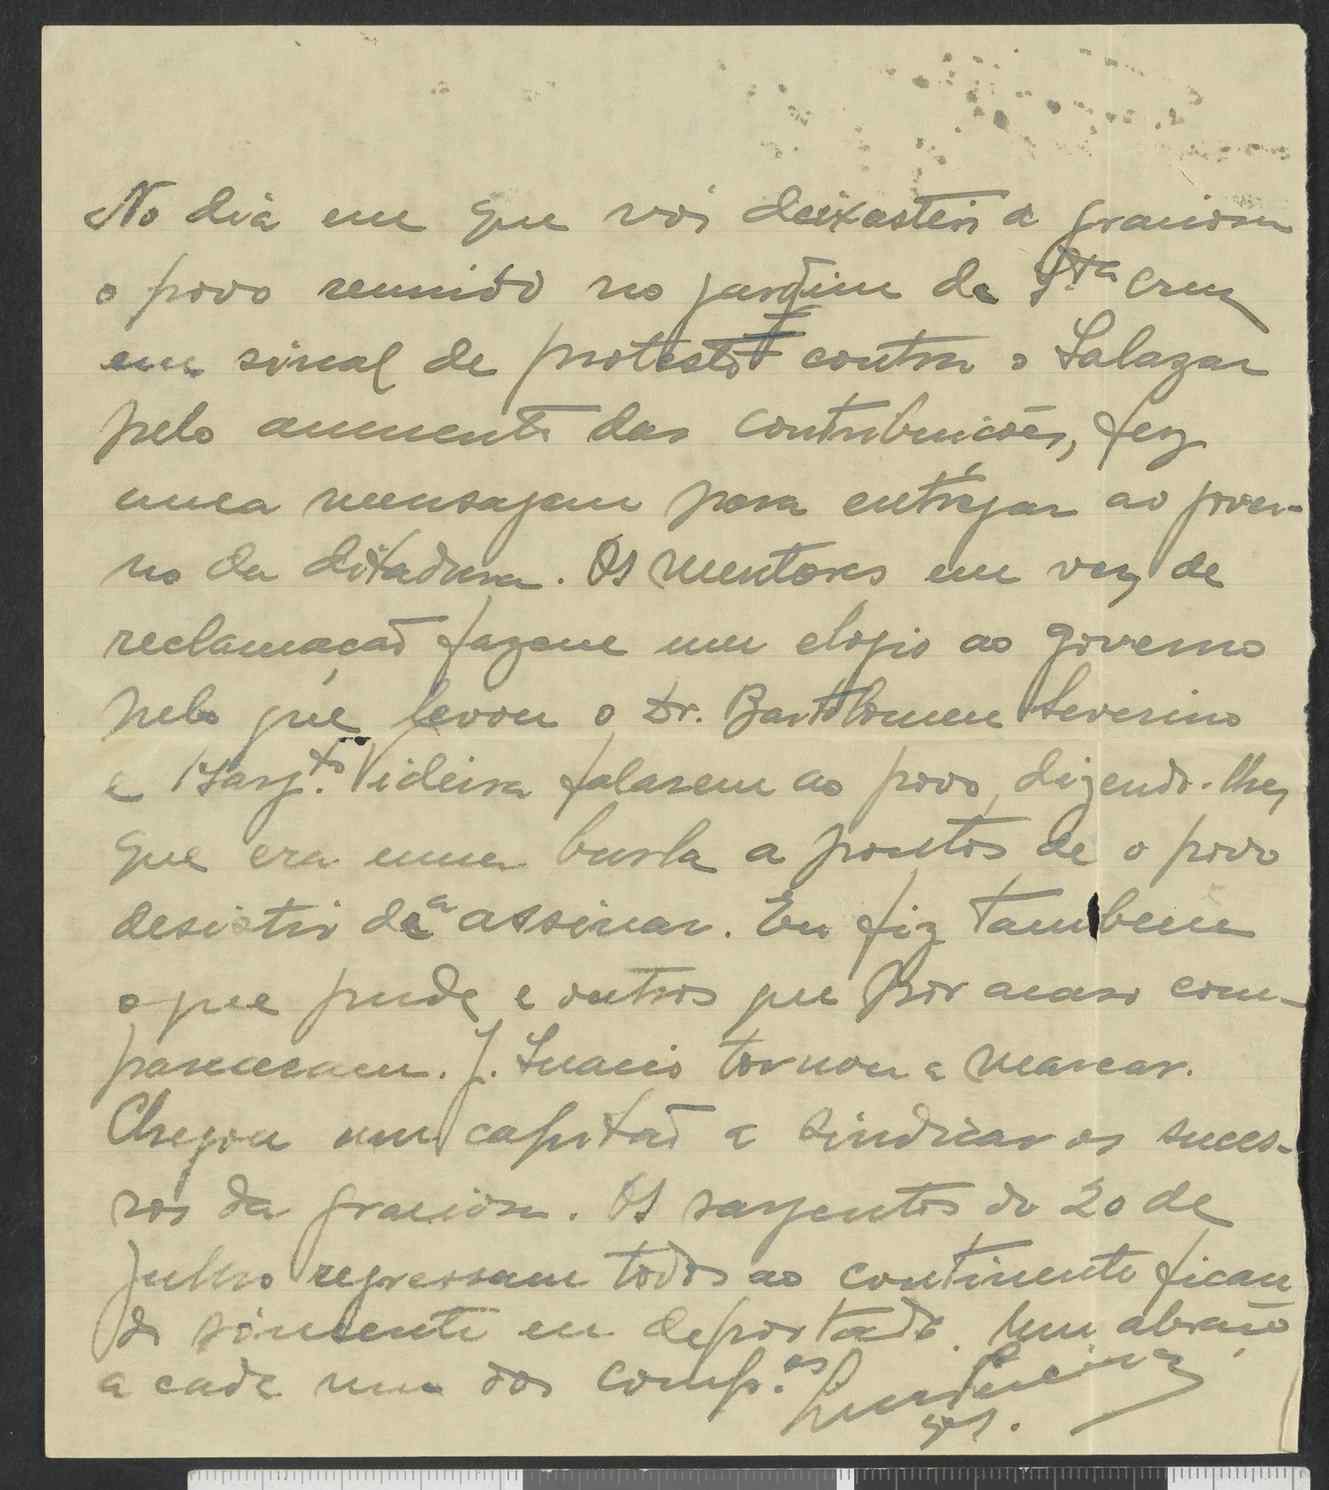 No dia em que vós deixasteis a graciosa
o povo reunido no jardim de Sta Cruz
em sinal de protesto contra o Salazar
pelo aumento das contribuições, fez
uma mensajem para entrégar ao gover-
no da ditadura. Os mentores em vez de
reclamação fazem um elogio ao governo
pelo que levou o Dr. Bartolomeu Severino
e Sarg.to Videira falarem ao povo, dizendo-lhes
que era uma burla a pontos de o povo
desistir de a assinar. Eu fiz tambem
o que pude e outros que por acaso com-
pareceram. J. Inacio tornou a marcar.
Chegou um capitão a sindicar os suces-
sos da graciosa. Os sargentos do 20 de
Julho regressam todos ao continente fican
do sómente eu deportado. Um abraço
a cada um dos comp.os